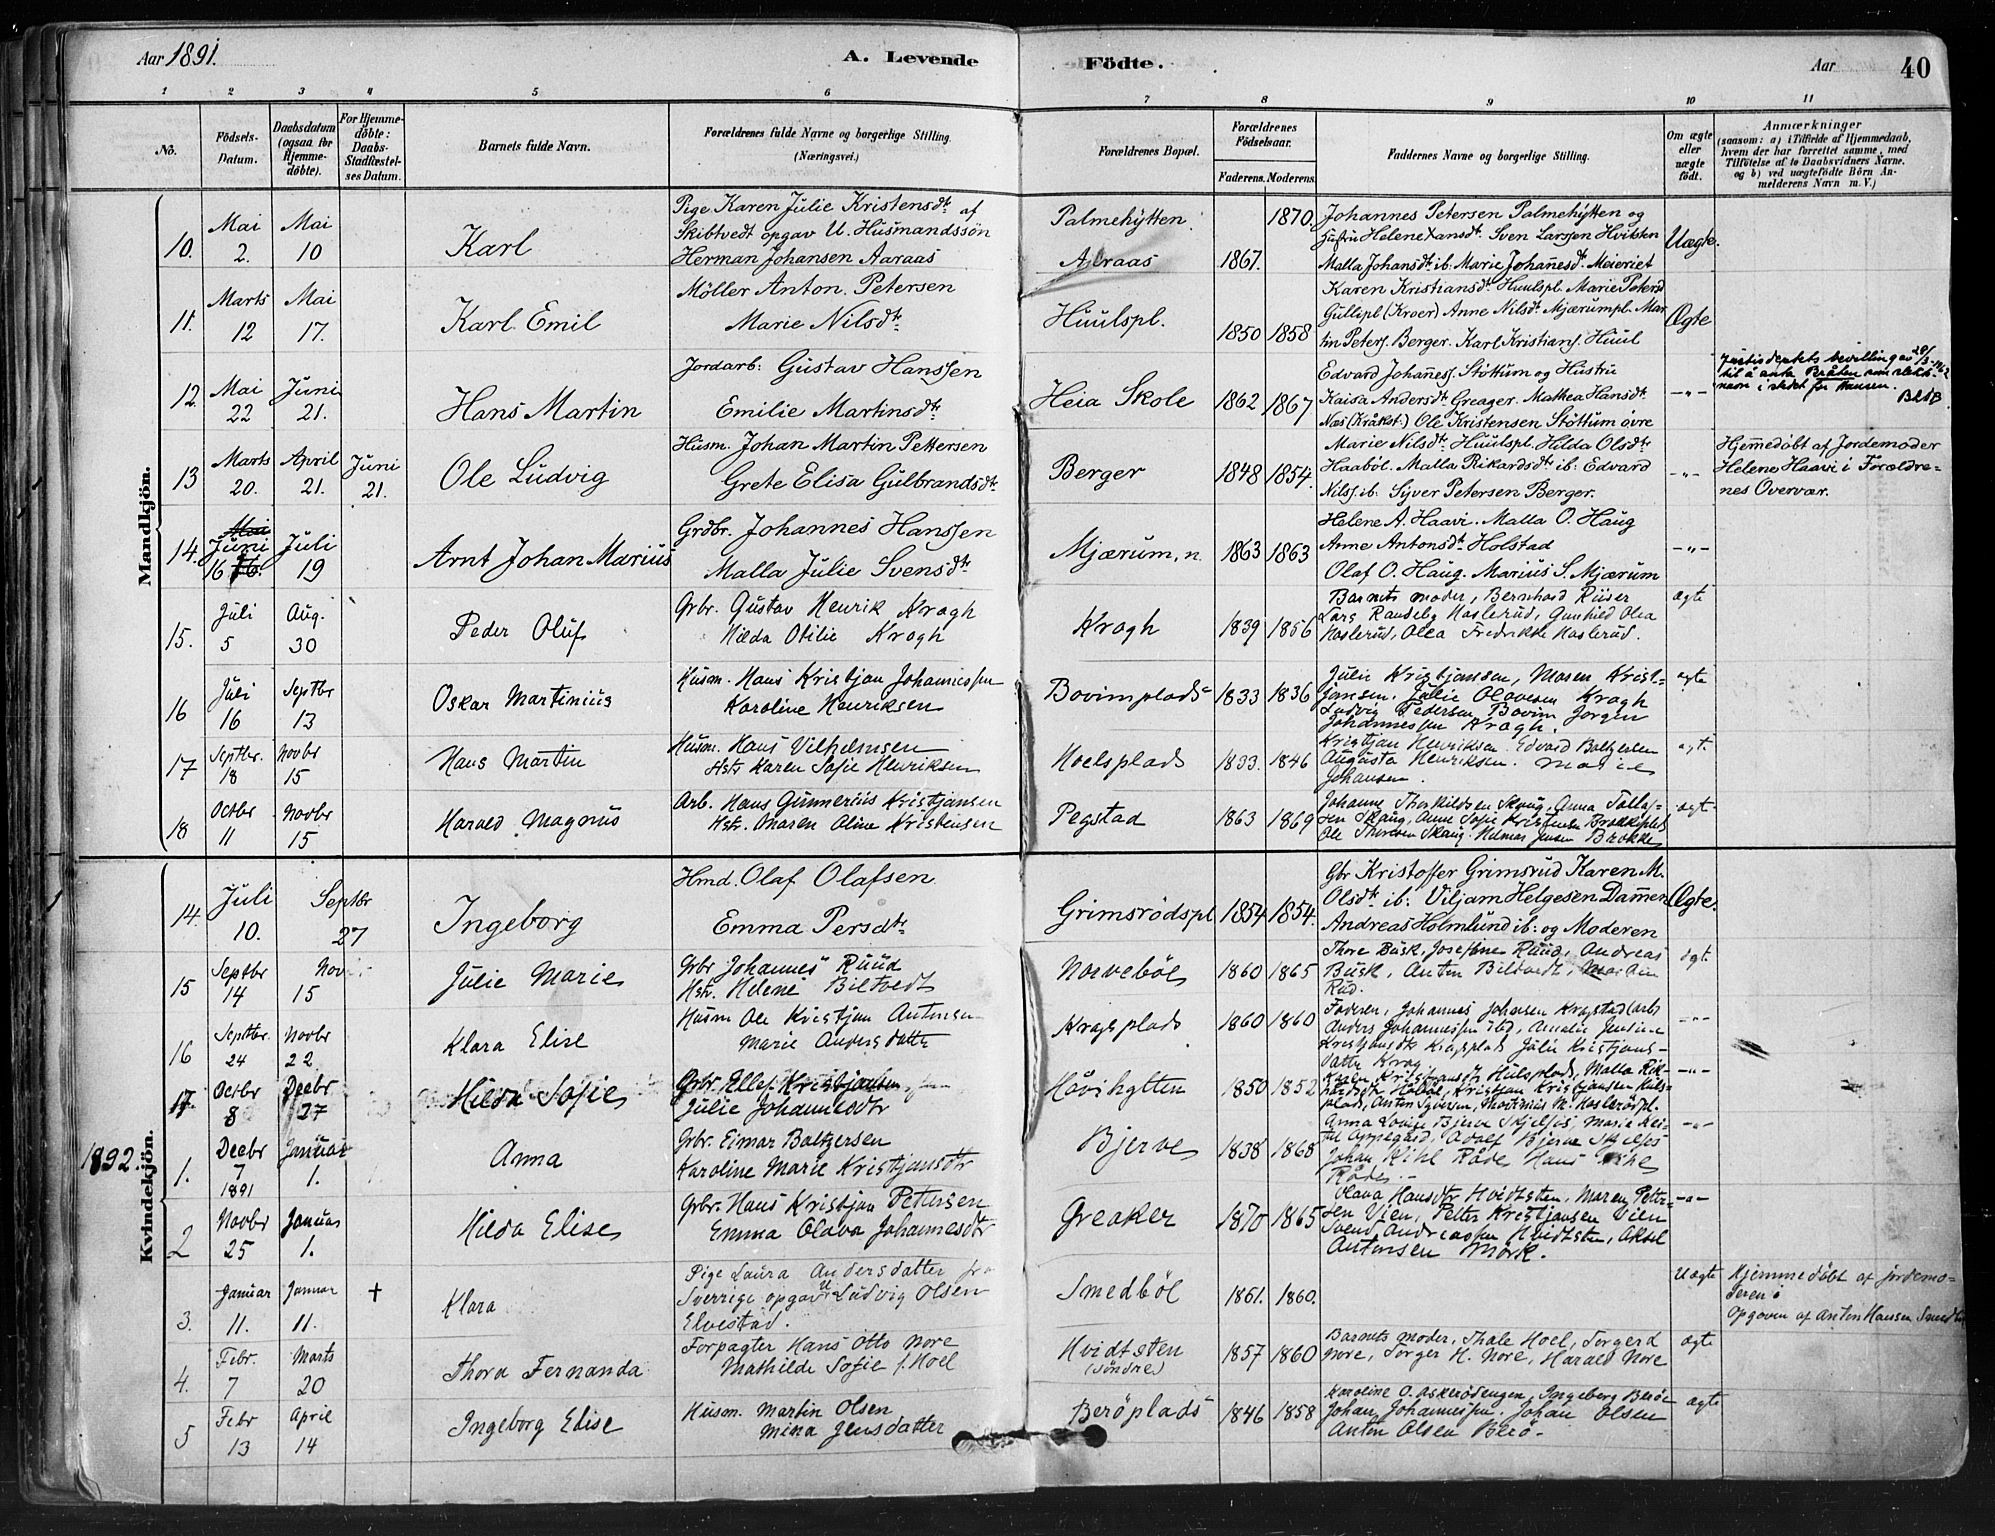 Aar 1891.
A. Levende Födte.
Aar
40
1 2 3 4 5 6 7 8 9 10 11
No.
Födsels-Datum.
Daabsdatum (ogsaa for Hjemme-döbte).
For Hjemme-döbte: Daabs-Stadfæstel-ses Datum.
Barnets fulde Navn.
Forældrenes fulde Navne og borgerlige Stilling.
(Næringsvei.)
Forældrenes Bopæl.
Forældrenes Födselsaar.
Faderens. Moderens.
Faddernes Navne og borgerlige Stilling.
Om ægte eller uægte födt.
Anmærkninger
(saasom: a) i Tilfælde af Hjemmedaab,
hvem der har forrettet samme, med
Tilföielse af to Daabsvidners Navne.
og b) ved uægtefödte Börn An-
melderens Navn m. V.)
Mandkjön.
10. Mai 2. Mai 10 Karl
Pige Karen Julie Kristensdt. af
Skibtvedt opgav U. Husmandssön
Herman Johansen Aaraas
Palmehytten.
Aaraas
1867. 1870.
Johannes Petersen Palmehytten og
Hustru Helene Hansdt. Sven Larssen Hvitsten
Malla Johansdt. ib: Marie Johannesdt. Meieriet
Uægte.
11. Marts 12 Mai 17. Karl Emil
Møller Anton Petersen
Marie Nilsdt.
Huulspl. 1850 1858
Karen Kristiansdt. Huulspl. Marie Petersd
Gullispl (Kroer) Anne Nilsdt. Mjærumpl. Mar
tin Peters. Berger. Karl Kristians. Huul
Ægte
12. Mai 22 Juni 21. Hans Martin
Jordarb: Gustav Hanssen
Emilie Martinsdt.
Heia Skole 1862 1867
Edvard Johannes. Støttum og Hustru
Kaisa Andersdt. Greager. Mathea Hansdt.
Næs (Kråkst.) Ole Kristensen Støttum övre
-"-
Justisdeptets bevilling av 29/3-1962
til å anta Bråten som slekts-
navn i stedet for Hansen.
13 Marts 20. April 21. Juni 21. Ole Ludvig
Husm. Johan Martin Pettersen
Grete Elisa Gulbrandsdt.
Berger 1848 1854.
Marie Nilsdt. Huulspl. Hilda Olsdt.
Haaböl. Malla Rikardsdt. ib: Edvard
Nilss. ib. Syver Petersen Berger.
-"-
Hjemmedöbt af Jordemoder
Helene Haavi i Forældre-
nes Overvær.
14. Mai Juni 16 Juli 19 Arnt Johan Marius
Grdbr. Johannes Hanssen
Malla Julie Svensdt.
Mjærum, n. 1863 1863
Helene A. Haavi. Malla O. Haug
Anne Antonsdt. Holstad
Olaf O. Haug. Marius S. Mjærum
-"-
15. Juli 5 Aug. 30 Peder Oluf
Grbr. Gustav Henrik Krogh
Hilda Otilie Krogh
Krogh 1839 1856
Barnets moder, Bernhard Riiser
Lars Randeby Haslerud, Gunhild Olea
Haslerud, Olea Fredrikke Haslerud.
ægte
16 Juli 16 Septbr 13 Oskar Martinius
Husm. Hans Kristjan Johannessen
Karoline Henriksen
Bovimplads 1833 1836
Julie Kristjansen, Maren Krist-
jansen. Julie Olavesen Krogh
Ludvig Pedersen Bovim Jørgen
Johannessen Krogh.
ægte
17 Septbr. 18 Novbr 15 Hans Martin
Husm. Hans Vilhelmsen
Hstr Karen Sofie Henriksen
Hoelsplads 1833. 1846
Kristjan Henriksen. Edvard Baltzersen
Augusta Henriksen. Marie
Johansen.
ægt.
18 Octbr 11 Novbr 15 Harald Magnus
Arb. Hans Gunnerius Kristjansen
Hstr. Maren Oline Kristensen
Pegstad 1863 1869
Johanne Thorkildsen Skaug, Anna Tollef-
sen Skaug, Anne Sofie Kristensen Brækkeplads
Ole Thoresen Skaug. Helmer Jensen Brække
ægt
Kvindekjön.
14. Juli 10. Septbr 27 Ingeborg
Hmd. Olaf Olafsen
Emma Persdt.
Grimsrödspl 1854 1854.
Gbr Kristoffer Grimsrud Karen M.
Olsdt. ib: Viljam Helgesen Dammen
Andreas Holmlund ib: og Moderen
Ægte.
15 Septbr 14 Nov 15 Julie Marie
Grbr Johannes Ruud
Hstr. Helene Biltvedt
Norvebøl 1860 1865
Thore Busk, Josefine Ruud, Andreas
Busk, Anton Biltvedt, Martin
Rud.
ægt
16 Septbr. 24 Novbr 22 Klara Elise
Husm Ole Kristjan Antonsen
Marie Andersdatter
Kragsplads 1860 1860
Faderen, Johannes Johansen Kragstad (arb)
Anders Johannessen ibd, Amalie Jensine
Kristjansdtr Kragsplads Julie Kristjans-
datter Krog
-"-
17 Octbr 8 Decbr 27 Hilda Sofie
Grbr. Ellef Kristjansen
Julie Johannesdtr
Høvihytten 1850 1852
Karen Kristjansdtr Hulsplads, Malla Rik-
hardsdtr Haabøl, Kristjan Kristjansen Huls-
plads, Anton Syversen, Martinius M. Haslerødpl.
-"-
1892.
1. Decbr 7 1891 Januar 1. Anna
Grbr. Eimar Baltzersen
Karoline Marie Kristjansdtr
Bjerve 1838 1868
Anna Lovise Bjerve
Oppegård, Adolf Bjerve
Johan Kihl Råde Hans Kihl
Råde.
-"-
2 Novbr 25 Januar 1. Hilda Elise
Grbr. Hans Kristjan Pettersen
Emma Olava Johannesdtr
Greaker 1870 1865
Olava Hansdtr Hvidtsten, Maren Petter-
sen Vien, Petter Kristjansen Vien
Svend Andreassen Hvidtsten, Aksel
Antonsen Mørk.
-"-
3. Januar 11. Januar 11. + Klara
Pige Laura Andersdatter fra
Sverrige opgav U Ludvig Olsen
Elvestad.
Smedbøl 1861. 1860.
Uægte
Hjemmedöbt af jordemo-
deren i
Opgaven af Anton Hansen Smedbøl
4. Febr. 7 Marts 20 Thora Fernanda
Forpagter Hans Otto Nore
Mathilde Sofie f. Hoel
Hvidtsten (søndre) 1857 1860
Barnets moder, Thale Hoel, Torgerd
Nore, Torger H. Nore, Harald Nore
ægte
5 Febr 13 April 14 Ingeborg Elise
Husm. Martin Olsen
Mina Jensdatter
Berøplads 1846 1858
Karoline O. Askerødengen, Ingeborg Berøe
Johan Johannessen. Johan Olsen
Anton Olsen Berø.
ægte